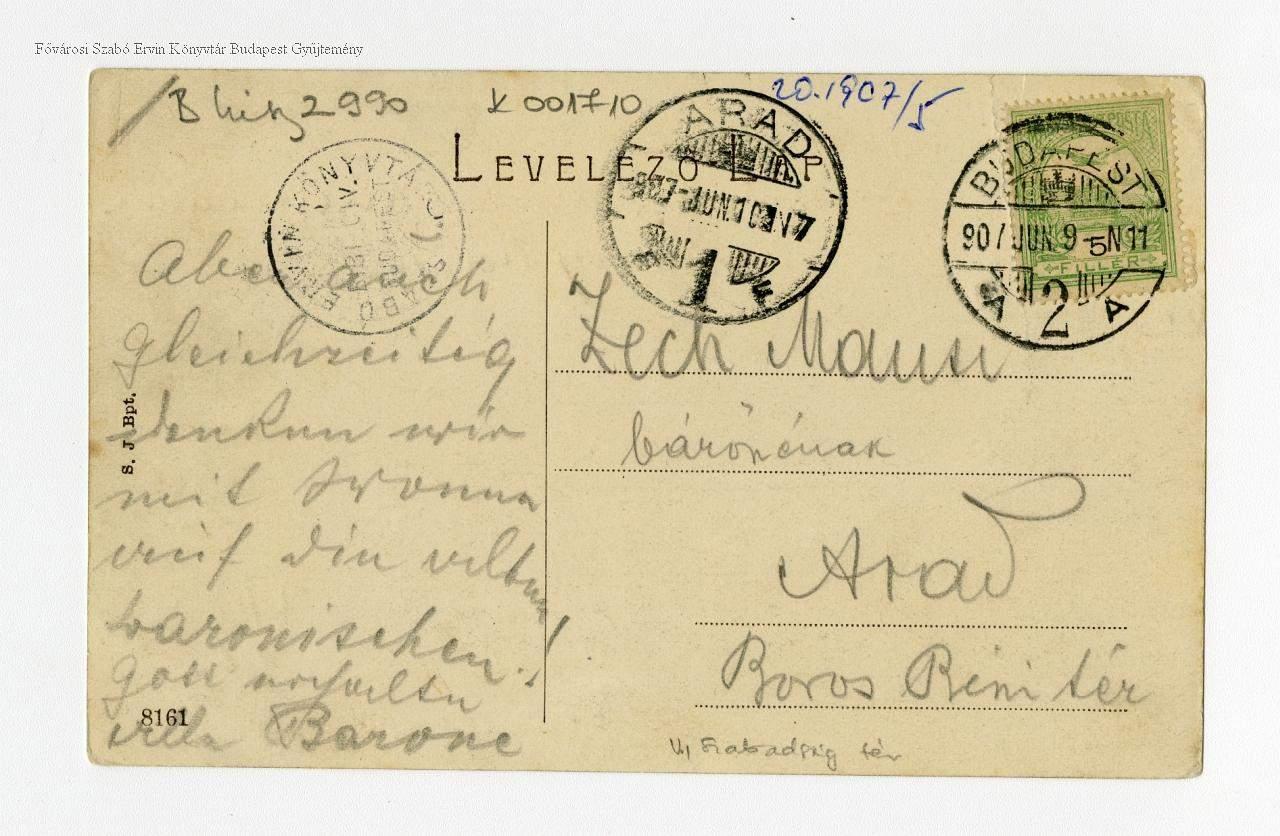 Fővárosi Szabó Ervin Könyvtár Budapest Gyűjtemény
2990
K 001710
20.1907/5
LEVELEZŐ LAP
ARAD
1
F
BUDAPEST
907 JUN 9 - N11
A 2 A
5
FILLÉR
Aber auch
gleichzeitig
denken wir
mit
auf die
baronischen!
Gott erhalte
alle Barone
S. J. Bpt.
8161
Zech Mansi
bárónénak
Arad
Boros Béni tér
Új Szabadság tér